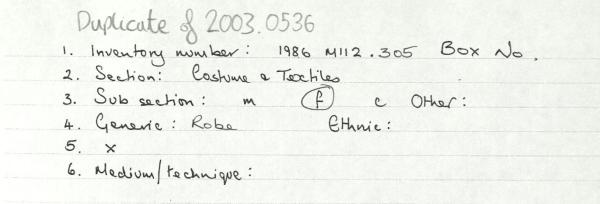 Duplicate of 2003.0536
1. Inventory number: 1986 M112.305 Box No.
2. Section: Costume & Textiles
3. Sub section: m f c Other:
4. Generic: Robe Ethnic:
5. x
6. Medium/technique: